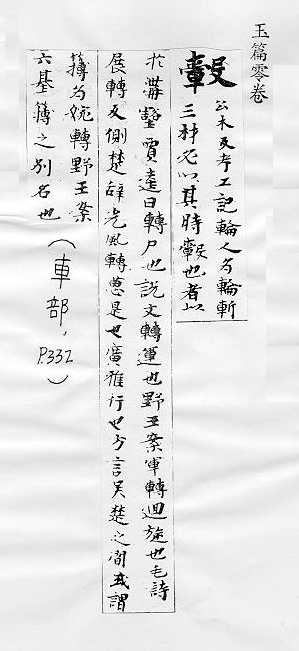 玉篇零卷
轂 公木反考工記輪人為輪斬
三材必以其時轂也者以
於溝壑賈逵曰轉尸也說文轉運也野王案軍轉迴旋也毛詩
展轉反側楚辭光風轉蕙是也廣雅行也方言吳楚之間或謂
簙為婉轉野王案
六基簙之別名也
(車部, P.332)